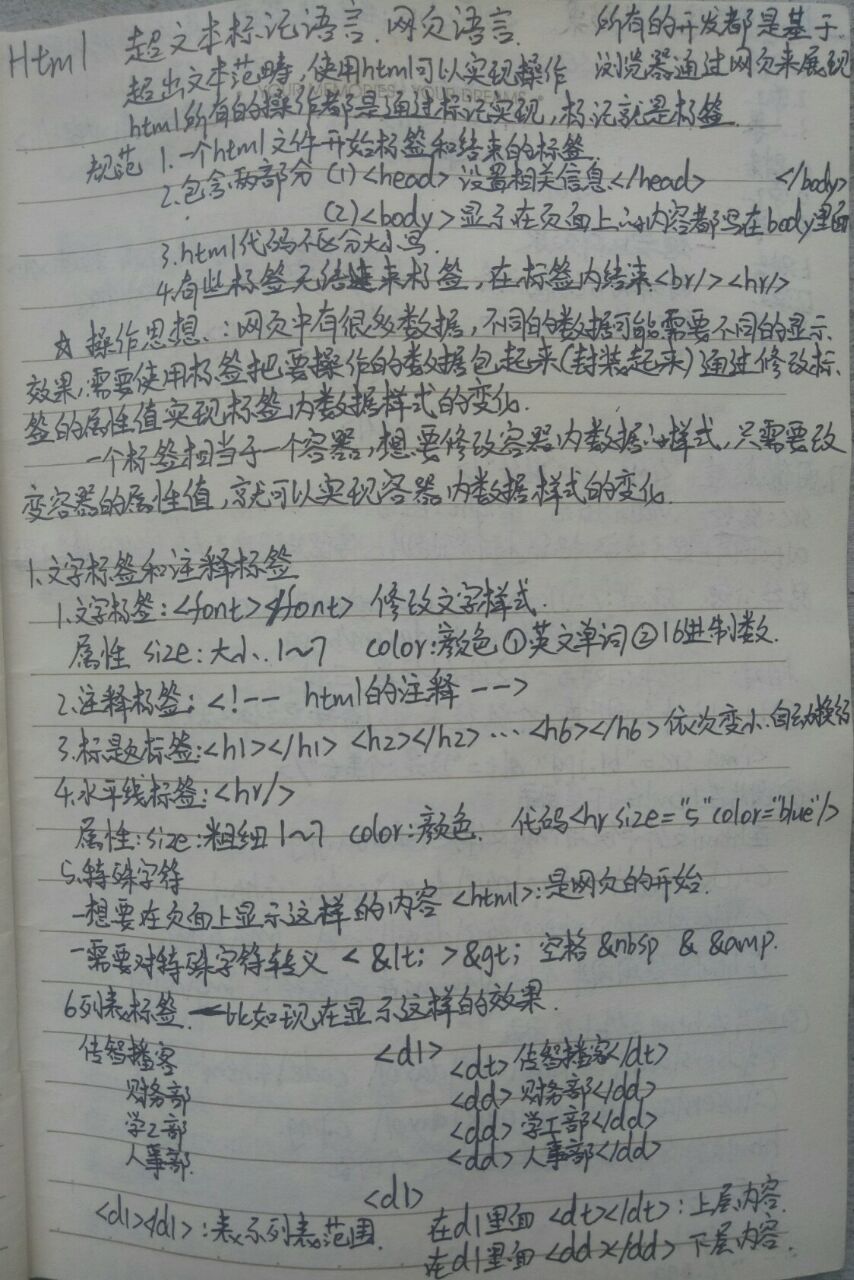 Html 超文本标记语言.网页语言. 所有的开发都是基于
超出文本范畴,使用html可以实现操作 浏览器通过网页来展现
html所有的操作都是通过标记实现,标记就是标签
规范 1.一个html文件开始标签和结束的标签
2.包含两部分 (1)<head>设置相关信息</head> </body>
(2)<body>显示在页面上的内容都写在body里面
3.html代码不区分大小写.
4.有些标签无结束标签,在标签内结束<br/><hr/>
☆操作思想、:网页中有很多数据,不同的数据可能需要不同的显示
效果,需要使用标签把要操作的数据包起来(封装起来)通过修改标
签的属性值实现标签内数据样式的变化.
一个标签相当于一个容器,想要修改容器内数据的样式,只需要改
变容器的属性值,就可以实现容器内数据样式的变化.
1.文字标签和注释标签
1.文字标签:<font></font> 修改文字样式.
属性 size:大小.1~7 color:颜色①英文单词②16进制数.
2.注释标签:<!-- html的注释 -->
3.标题标签:<h1></h1> <h2></h2> ... <h6></h6>依次变小.自动换行
4.水平线标签:<hr/>
属性:size:粗细1~7 color:颜色. 代码<hr size="5" color="blue"/>
5.特殊字符
-想要在页面上显示这样的内容 <html>:是网页的开始.
-需要对特殊字符转义 < &lt; >&gt; 空格 &nbsp & &amp.
6列表标签.-比如现在显示这样的效果.
传智播客 <dl> <dt>传智播客</dt>
财务部 <dd>财务部</dd>
学工部 <dd>学工部</dd>
人事部 <dd>人事部</dd>
<dl>
<dl></dl>:表示列表范围. 在dl里面 <dt></dt>:上层内容.
在dl里面 <dd></dd> 下层内容.